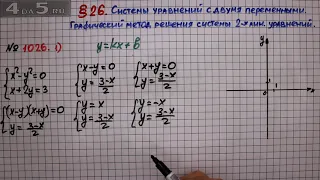 4 ДА 5 .РУ
§ 26. Системы уравнений с двумя переменными.
Графический метод решения системы 2-х лин. уравнений.
№ 1026. 1)
y=kx+b
{x²-y²=0 {x-y=0 {x+y=0
{x+2y=3 {y=3-x/2 {y=3-x/2
{(x-y)(x+y)=0 {y=x {y=-x
{y=3-x/2 {y=3-x/2 {y=3-x/2
y
1
1
x